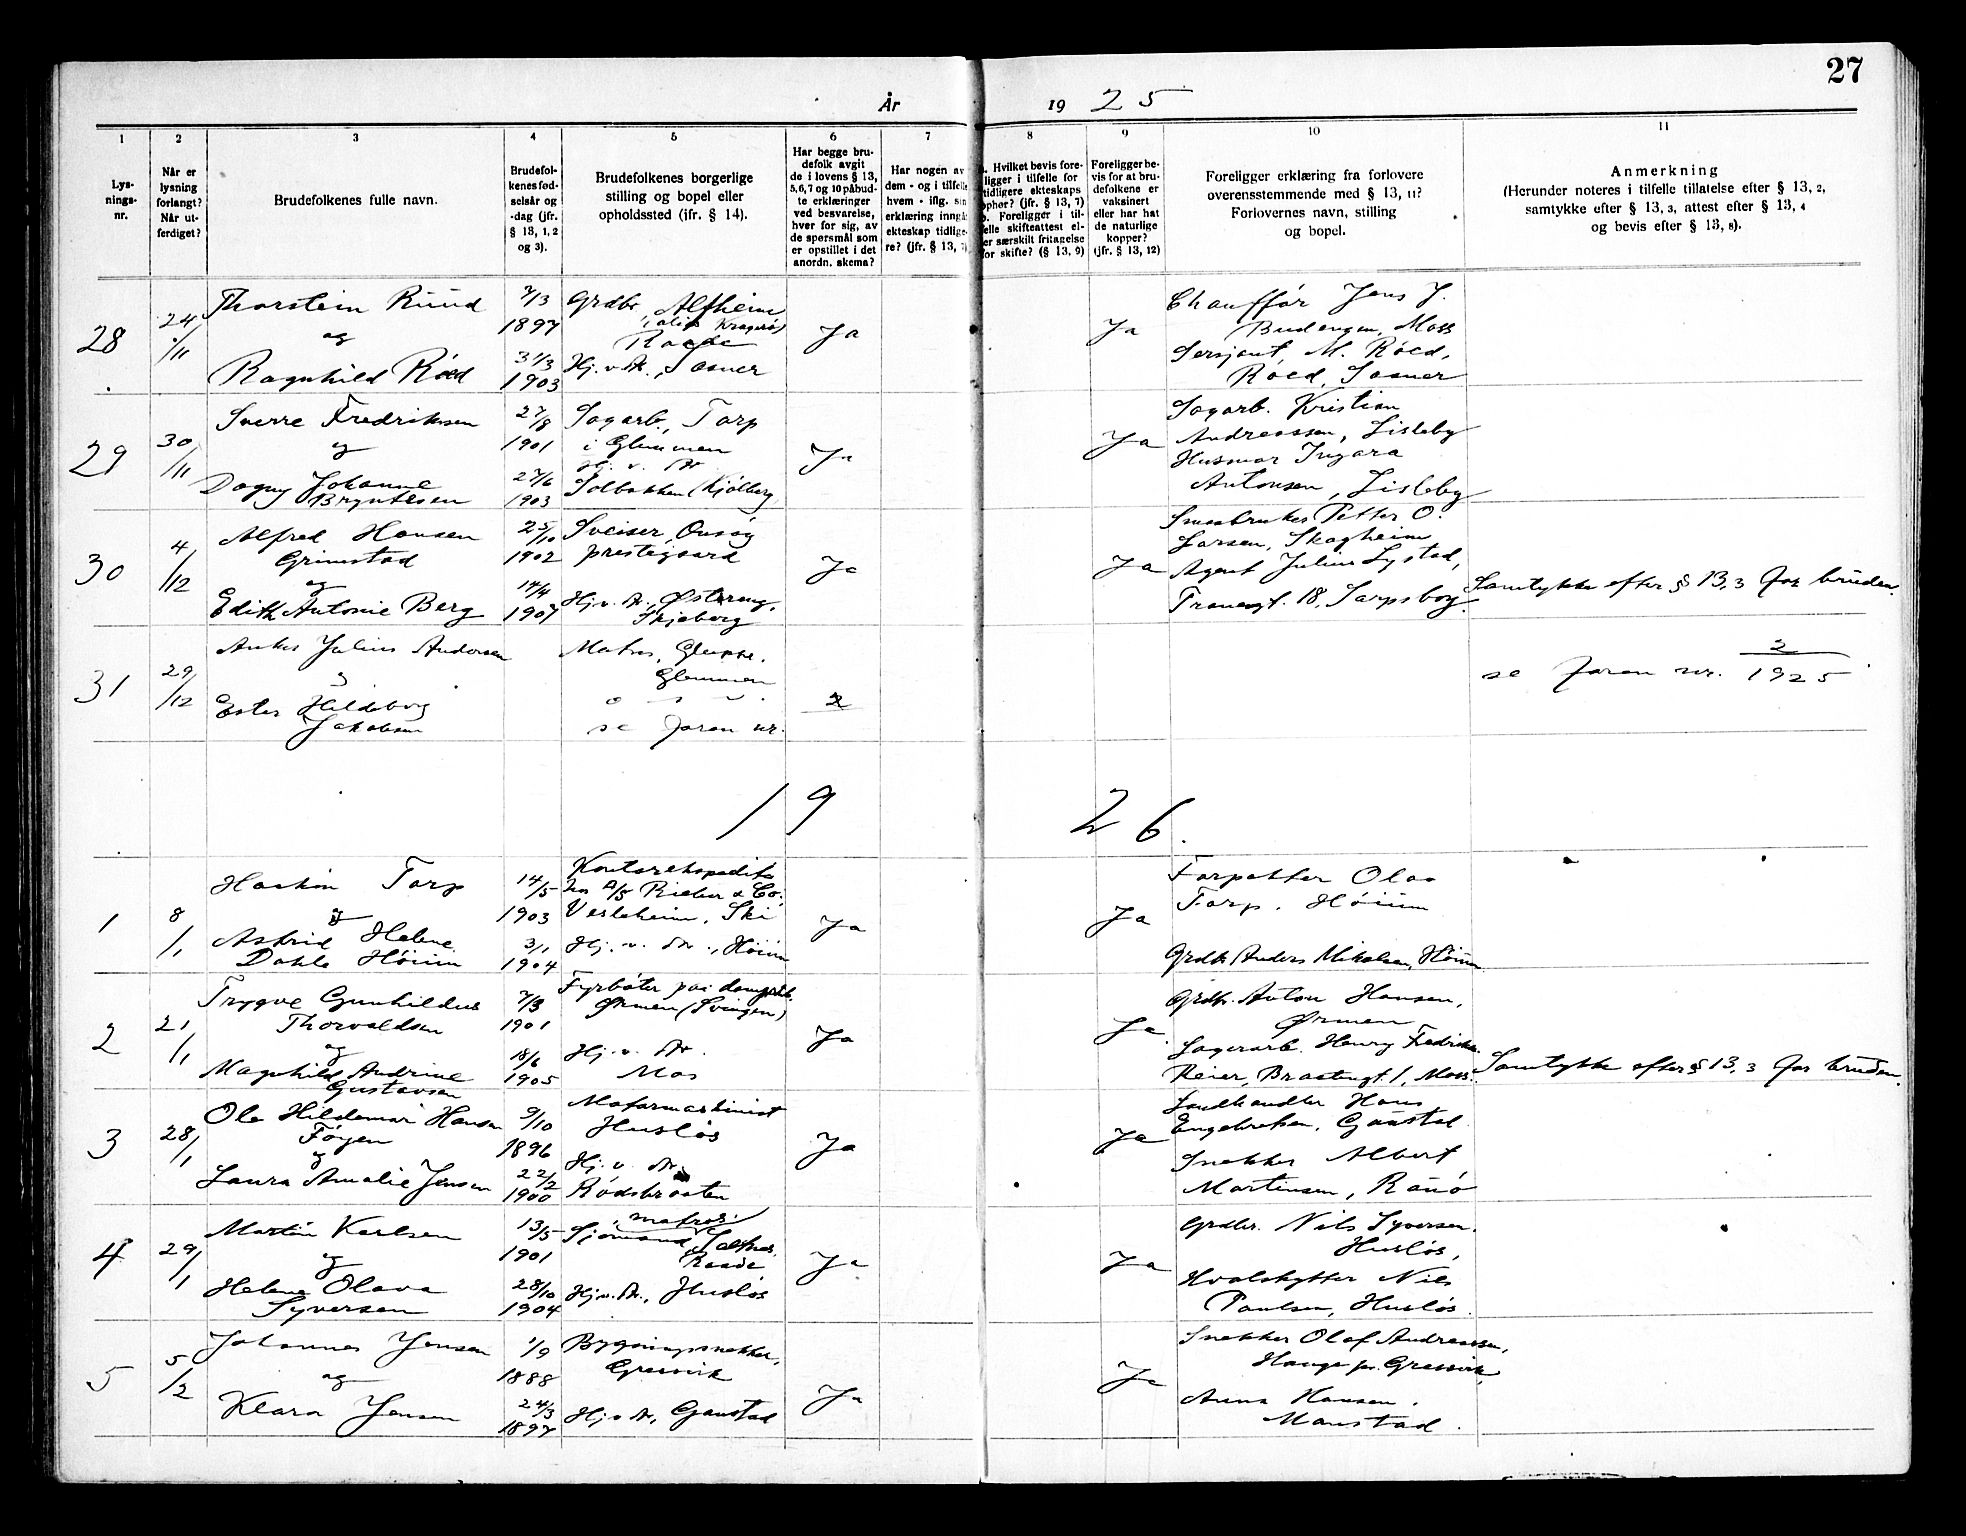 27
År
19 25
1
2
3
4
5
6
7
8
9
10
11
Lys-
nings-
nr.
Når er
lysning
forlangt?
Når ut-
ferdiget?
Brudefolkenes fulle navn.
Brudefol-
kenes fød-
selsår og
-dag (jfr.
§ 13, 1, 2
og 3).
Brudefolkenes borgerlige
stilling og bopel eller
opholdssted (jfr. § 14).
Har begge bru-
defolk avgit
de i lovens § 13,
5,6,7 og 10 påbud-
te erklæringer
ved besvarelse,
hver for sig, av
de spørsmål som
er opstillet i det
anordn. skema?
Har nogen av
dem - og i tilfelle
hvem - iflg. sin
erklæring inngå
ekteskap tidlige-
re? (jfr. § 13,
Hvilket bevis fore-
ligger i tilfelle for
tidligere ekteskaps
ophør? (jfr. § 13, 7)
Foreligger i til-
felle skifteattest el-
er særskilt fritagelse
for skifte? (§ 13, 9)
Foreligger be-
vis for at bru-
defolkene er
vaksinert
eller har hat
de naturlige
kopper?
(jfr. § 13, 12)
Foreligger erklæring fra forlovere
overensstemmende med § 13, 11?
Forlovernes navn, stilling
og bopel.
Anmerkning
(Herunder noteres i tilfelle tillatelse efter § 13, 2,
samtykke efter § 13, 3, attest efter § 13, 4
og bevis efter § 13, 8).
28
24/11
Thorstein Ruud
og
Ragnhild Röed
7/13
1897
31/3
1903
Grdbr. Alfheim
Raade
Hj. v. Dr., Saaner
Ja
Ja
Chauffør Jens J.
Budengen, Moss
Sersjant M. Röed,
Röed, Saaner
29
30/11
Sverre Fredriksen
og
Dagny Johanne
Bryntesen
27/8
1901
27/6
1903
Sagarb., Torp
i Glemmen
Hj. v. Dr.
Solbakken (Kjölberg
Ja
Ja
Sagarb. Kristian
Andreassen, Lisleby
Husmor Ingara
Antonsen, Lisleby
30
4/12
Alfred Hansen
Grimstad
og
Edith Antonie Berg
25/10
1902
14/4
1907
Sveiser, Onsøy
prestegaard
Hj. v. Dr., Østereng,
Skjeberg
Ja
Ja
Smaabruker Petter O.
Larsen, Skogheim
Agent Julius Lystad,
18, Sarpsborg
Samtykke efter § 13, 3 for bruden.
31
29/12
Julius Andersen
og
Ester Hildeborg
Jakobsen
Matros, Gluppe,
Glemmen
se foran nr.
2
se foran nr. 2/1925
19 26.
1
8/1
Haakon Torp
og
Astrid Helene
Dahle Höium
14/5
1903
3/1
1904
Kontorekspeditør
hos A/S Rieber & Co.
Vesleheim, Ski
Hj. v. Dr., Höium
Ja
Ja
Forpakter Olaf
Torp, Höium
Grdbr. Anders Mikalsen, Höium
2
21/1
Trygve Gunhildus
Thorvaldsen
og
Magnhild Andrine
Gustavsen
7/3
1901
18/6
1905
Fyrbøter paa dampsk.
Ørmen (Svingen)
Hj. v. Dr.
Mos
Ja
Ja
Grdbr. Anton Hansen,
Ørmen
Lagerarb. Henry Fredrik
Reier, 1, Moss.
Samtykke efter § 13, 3 for bruden.
3
28/1
Ole Hildemar Hansen
Föyen
og
Laura Amalie Jensen
9/10
1896
22/2
1900
Motormaskinist
Huslös
Hj. v. Dr.
Rödsbraaten
Ja
Ja
Landhandler Hans
Engebretsen, Gaustad
Snekker Albert
Martinsen, Rauö
4
29/1
Martin Karlsen
og
Helene Olava
Syversen
13/5
1901
28/10
1904
matros
Sjömand,
Raade
Hj. v. Dr., Huslös
Ja
Ja
Grdbr. Nils Syversen.
Huslös,
Hvalskytter Nils
Paulsen, Huslös.
5
5/2
Johannes Jensen
og
Klara Jensen
1/9
1888
24/3
1897
Bygningssnekker,
Gressvik
Hj. v. Dr., Gaustad
Ja
Ja
Snekker Olaf Andreassen,
Hauge pr. Gressvik,
Anna Hansen,
Manstad.